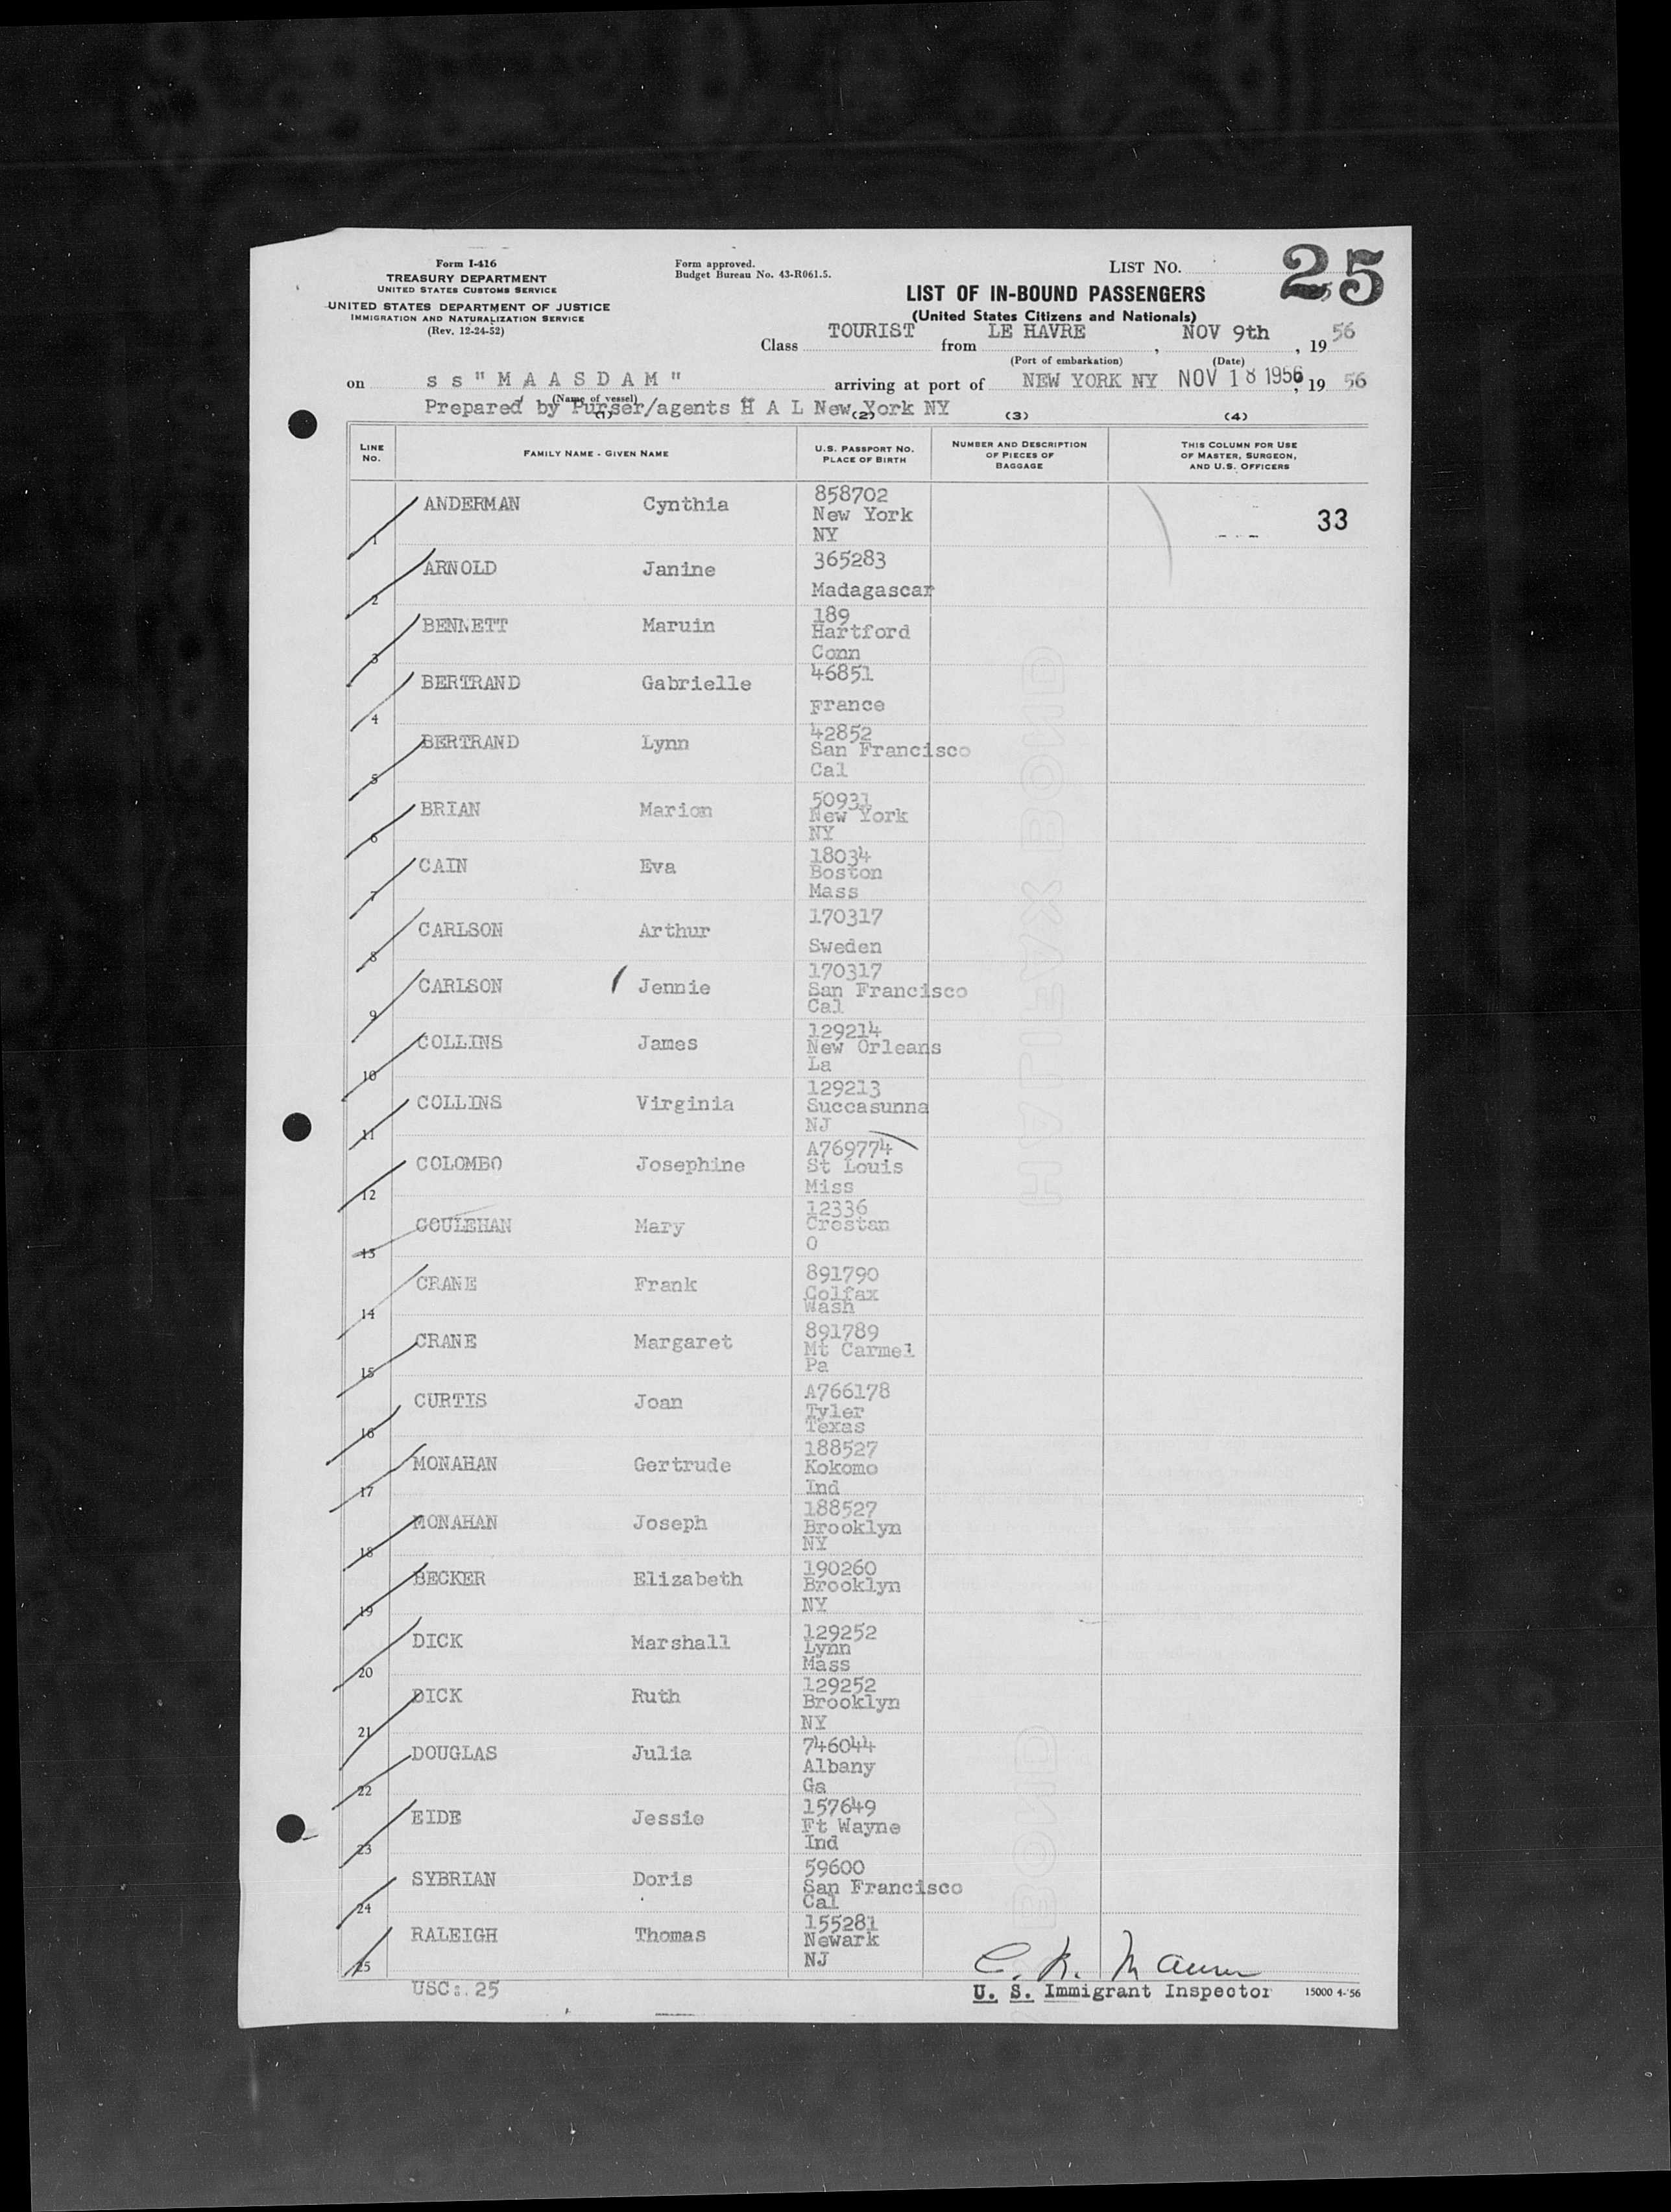 Form I-416
TREASURY DEPARTMENT
UNITED STATES CUSTOMS SERVICE
UNITED STATES DEPARTMENT OF JUSTICE
IMMIGRATION AND NATURALIZATION SERVICE
(Rev. 12-24-52)
Form approved.
Budget Bureau No. 43-R061.5.
LIST NO. 25
LIST OF IN-BOUND PASSENGERS
(United States Citizens and Nationals)
Class TOURIST from LE HAVRE, NOV 9th, 19 56
(Port of embarkation) (Date)
on s s " M A A S D A M " arriving at port of NEW YORK NY NOV 18 1956, 19 56
(Name of vessel)
Prepared by Purser/agents H A L New York NY
(1) (2) (3) (4)
LINE NO. FAMILY NAME - GIVEN NAME U.S. PASSPORT NO. PLACE OF BIRTH NUMBER AND DESCRIPTION OF PIECES OF BAGGAGE THIS COLUMN FOR USE OF MASTER, SURGEON, AND U.S. OFFICERS
1 ANDERMAN Cynthia 858702 New York NY 33
2 ARNOLD Janine 365283 Madagascar
3 BENNETT Maruin 189 Hartford Conn
4 BERTRAND Gabrielle 46851 France
5 BERTRAND Lynn 42852 San Francisco Cal
6 BRIAN Marion 50931 New York NY
7 CAIN Eva 18034 Boston Mass
8 CARLSON Arthur 170317 Sweden
9 CARLSON Jennie 170317 San Francisco Cal
10 COLLINS James 129214 New Orleans La
11 COLLINS Virginia 129213 Succasunna NJ
12 COLOMBO Josephine A769774 St Louis Miss
13 COULEHAN Mary 12336 Crestan O
14 CRANE Frank 891790 Colfax Wash
15 CRANE Margaret 891789 Mt Carmel Pa
16 CURTIS Joan A766178 Tyler Texas
17 MONAHAN Gertrude 188527 Kokomo Ind
18 MONAHAN Joseph 188527 Brooklyn NY
19 BECKER Elizabeth 190260 Brooklyn NY
20 DICK Marshall 129252 Lynn Mass
21 DICK Ruth 129252 Brooklyn NY
22 DOUGLAS Julia 746044 Albany Ga
23 EIDE Jessie 157649 Ft Wayne Ind
24 SYBRIAN Doris 59600 San Francisco Cal
25 RALEIGH Thomas 155281 Newark NJ
USC:. 25
U. S. Immigrant Inspector
15000 4-'56